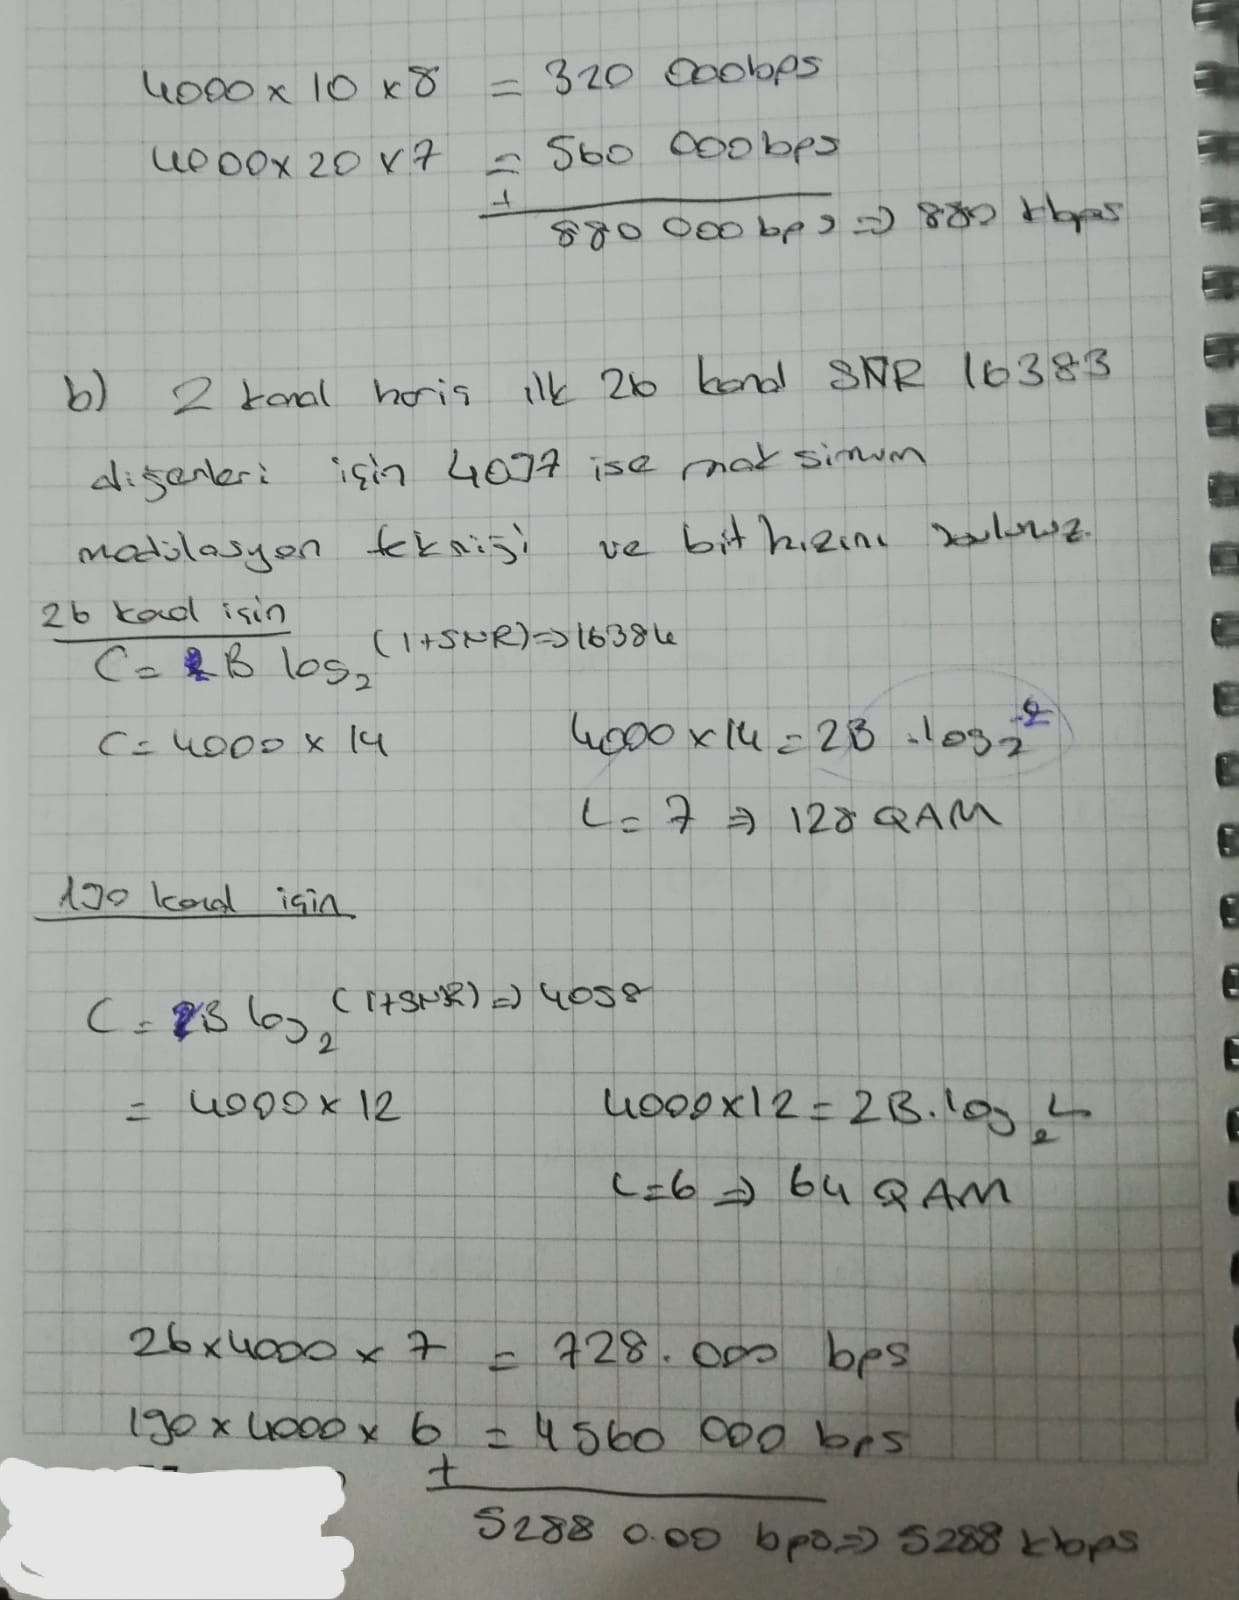 4000 x 10 x 8 = 320 000bps
4000 x 20 x 7 = 560 000bps
+
880 000 bps => 880 kbps
b) 2 kanal hariç ilk 26 kanal SNR 16383
diğerleri için 4097 ise maksimum
modülasyon tekniği ve bit hızını bulunuz.
26 kanal için
C = 2B log₂ (1+SNR) => 16384
C = 4000 x 14
4000 x 14 = 2B . log₂
L = 7 => 128 QAM
190 kanal için
C = B log₂ (1+SNR) => 4098
= 4000 x 12
4000 x 12 = 2B . log₂ L
L=6 => 64 QAM
26 x 4000 x 7 = 728.000 bps
190 x 4000 x 6 = 4560 000 bps
+
5288 0.00 bps => 5288 kbps